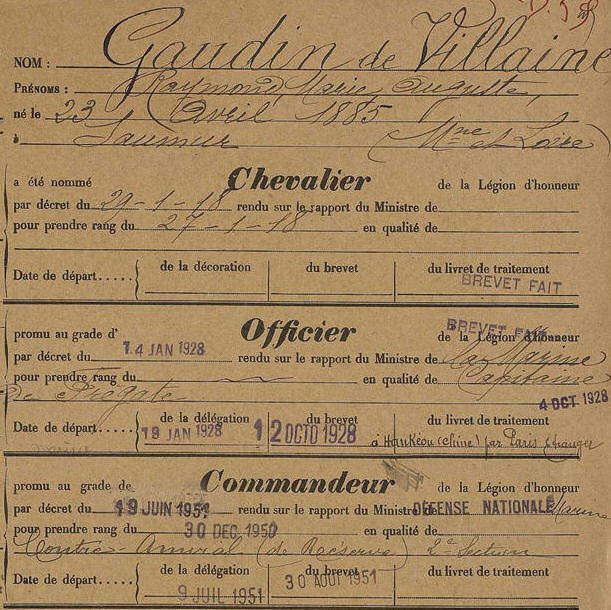 NOM : Gaudin de Villaine
PRÉNOMS : Raymond, Marie, Auguste,
né le 23 Avril 1885
à Saumur (Mne et Loire)
a été nommé Chevalier de la Légion d'honneur
par décret du 29-1-18 rendu sur le rapport du Ministre de
pour prendre rang du 27-1-18 en qualité de
Date de départ..... de la décoration du brevet du livret de traitement
BREVET FAIT
promu au grade d' Officier de la Légion d'honneur
BREVET FAIT
par décret du 14 JAN 1928 rendu sur le rapport du Ministre de la Marine
pour prendre rang du en qualité de Capitaine
de Frégate
4 OCT 1928
Date de départ..... de la délégation du brevet du livret de traitement
19 JAN 1928 12 OCTO 1928 à Hankéou (Chine) par Paris étranger
promu au grade de Commandeur de la Légion d'honneur
par décret du 19 JUIN 1951 rendu sur le rapport du Ministre de DÉFENSE NATIONALE Marine
pour prendre rang du 30 DEC 1950 en qualité de
Contre-Amiral (de Réserve) 2e Section
Date de départ..... de la délégation du brevet du livret de traitement
9 JUIL 1951 30 AOUT 1951